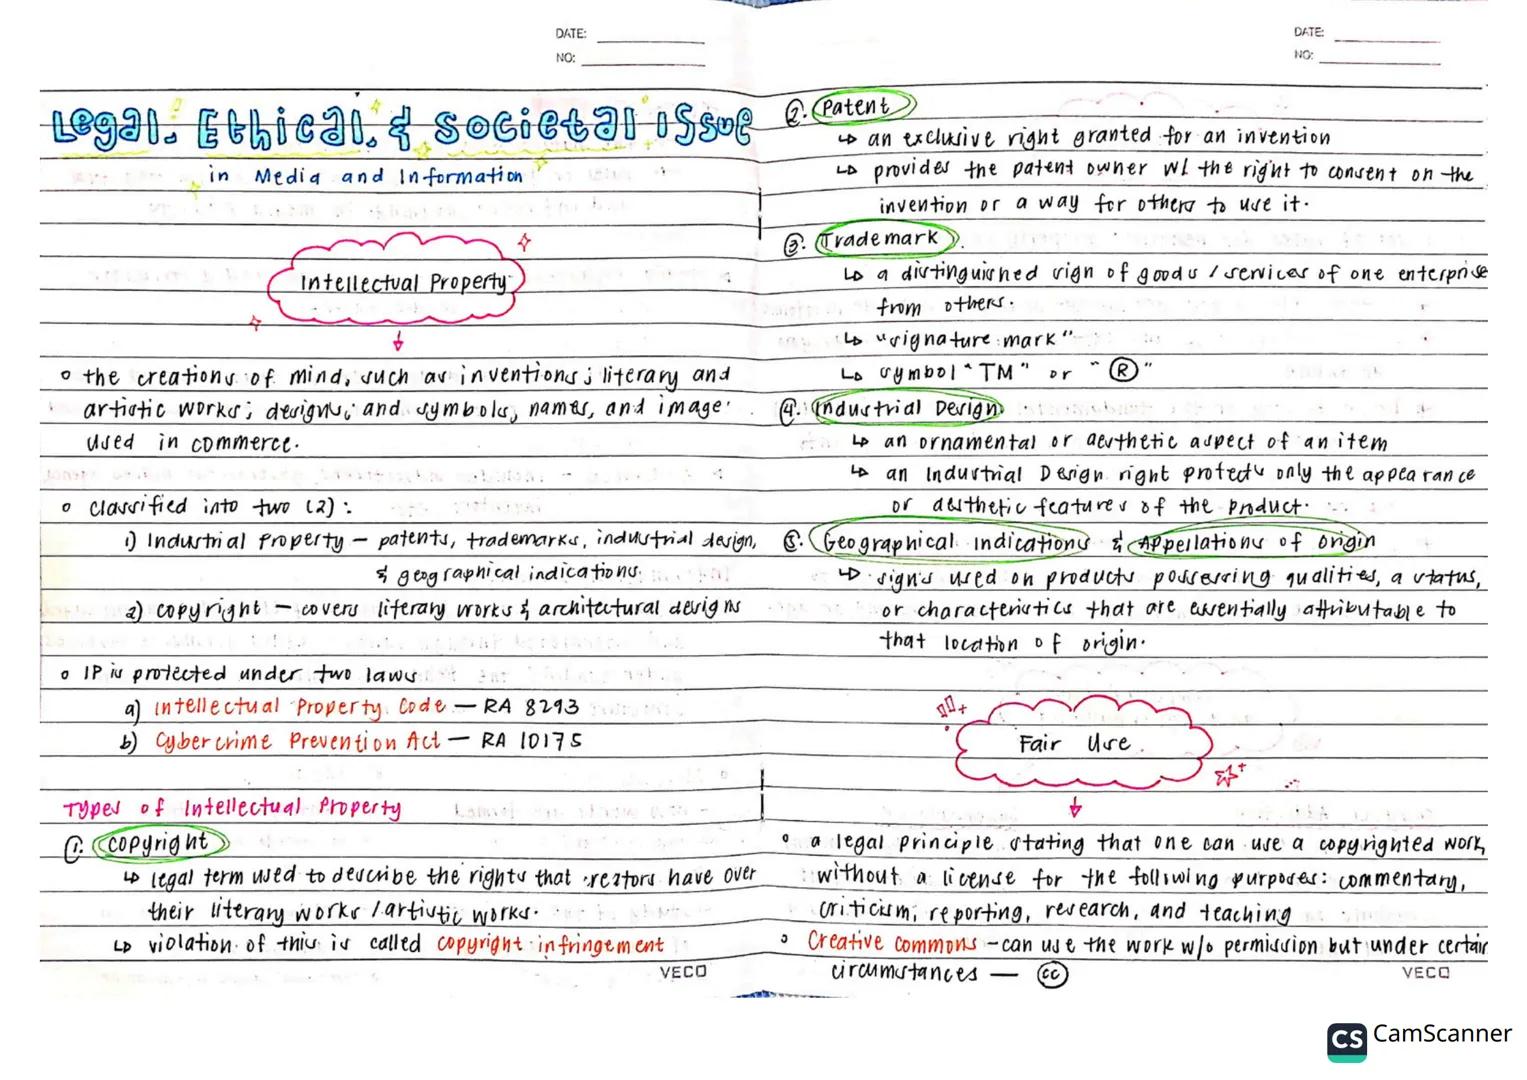 DATE:
NO:
Legal, Ethical, & Societal Issue
in Media and Information
Intellectual Property
the creations of mind, such as inventions; literary and
artistic works; designs; and symbols, names, and image
used in commerce.
classified into two (2):
1) Industrial Property — patents, trademarks, industrial design,
& geographical indications
2) copyright — covers literary works & architectural designs
IP is protected under two laws
a) Intellectual Property Code — RA 8293
b) Cybercrime Prevention Act — RA 10175
Types of Intellectual Property
1. copyright
↳ legal term used to describe the rights that creators have over
their literary works / artistic works.
↳ violation of this is called copyright infringement
VECO
DATE:
NO:
2. Patent
↳ an exclusive right granted for an invention
↳ provides the patent owner w/ the right to consent on the
invention or a way for others to use it.
3. Trademark
↳ a distinguished sign of goods / services of one enterprise
from others.
↳ "signature mark"
↳ symbol "TM" or "®"
4. Industrial Design
↳ an ornamental or aesthetic aspect of an item
↳ an Industrial Design right protects only the appearance
or aesthetic features of the product.
5. Geographical Indications & Appellations of Origin
↳ signs used on products possessing qualities, a status,
or characteristics that are essentially attributable to
that location of origin.
Fair Use
a legal principle stating that one can use a copyrighted work
without a license for the following purposes: commentary,
criticism, reporting, research, and teaching
Creative commons - can use the work w/o permission but under certain
circumstances — (cc)
VECO
CS CamScanner